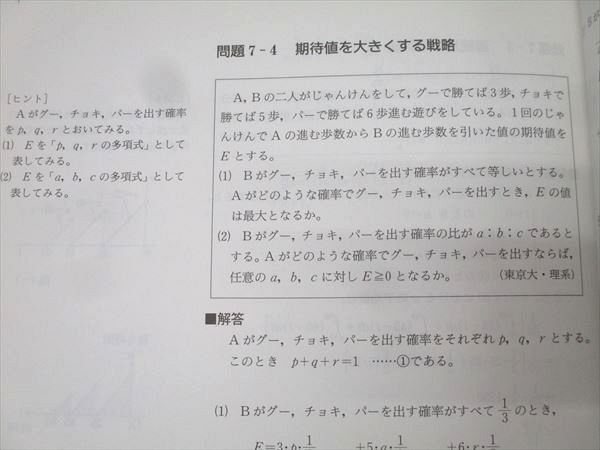 問題7-4 期待値を大きくする戦略
[ヒント]
Aがグー，チョキ，パーを出す確率
をp，q，rとおいてみる。
(1) Eを「p，q，rの多項式」として
表してみる。
(2) Eを「a，b，cの多項式」として
表してみる。
A，Bの二人がじゃんけんをして，グーで勝てば3歩，チョキで
勝てば5歩，パーで勝てば6歩進む遊びをしている。1回のじゃ
んけんでAの進む歩数からBの進む歩数を引いた値の期待値を
Eとする。
(1) Bがグー，チョキ，パーを出す確率がすべて等しいとする。
Aがどのような確率でグー，チョキ，パーを出すとき，Eの値
は最大となるか。
(2) Bがグー，チョキ，パーを出す確率の比がa：b：cであると
する。Aがどのような確率でグー，チョキ，パーを出すならば，
任意のa，b，cに対しE≧0となるか。 (東京大・理系)
■解答
Aがグー，チョキ，パーを出す確率をそれぞれp，q，rとする。
このとき p+q+r=1 ……①である。
(1) Bがグー，チョキ，パーを出す確率がすべて1/3のとき，
E=3・p・1/ +5・q・1/ +6・r・1/